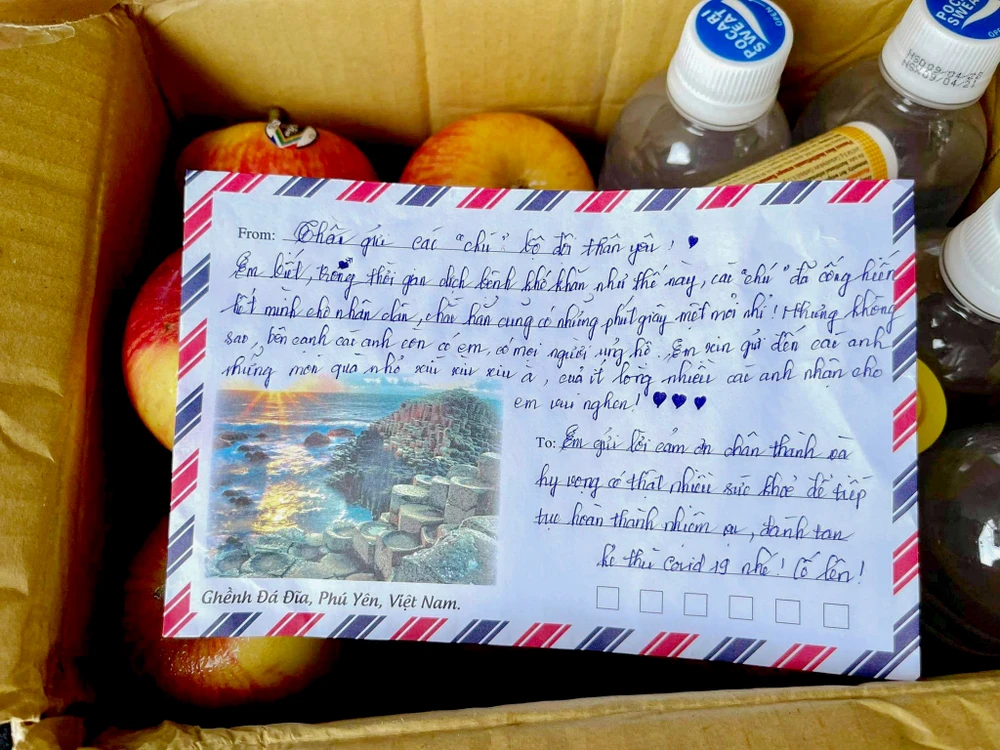 POCARI
SWEAT
POCARI
SWEAT
HSD09/04/20
NSX09/04/21
From: Thân gửi các "chú" bộ đội thân yêu!
Em biết, trong thời gian dịch bệnh khó khăn như thế này, các "chú" đã cống hiến
hết mình cho nhân dân, chắc hẳn cũng có những phút giây mệt mỏi nhỉ! Nhưng không
sao, bên cạnh các anh còn có em, có mọi người ủng hộ. Em xin gửi đến các anh
những món quà nhỏ xíu xiu xiu à, của ít lòng nhiều các anh nhận cho
em vui nghen!
To: Em gửi lời cảm ơn chân thành và
hy vọng có thật nhiều sức khoẻ để tiếp
tục hoàn thành nhiệm vụ, đánh tan
kẻ thù covid 19 nhé! Cố lên!
Ghềnh Đá Đĩa, Phú Yên, Việt Nam.